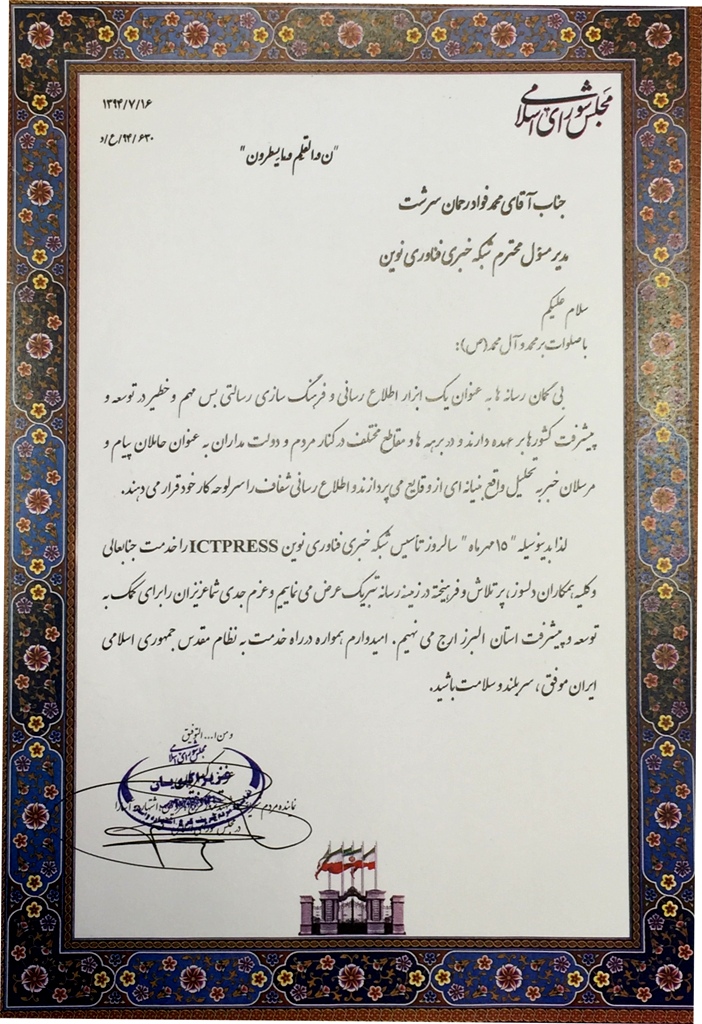 مجلس شورای اسلامی
۱۳۹۴/۷/۱۶
۶۳۰/۹۴/ع/د
"ن والقلم و مایسطرون"
جناب آقای محمد فواد رحمان سرشت
مدیر مسؤل محترم شبکه خبری فناوری نوین
سلام علیکم
با صلوات بر محمد و آل محمد (ص):
بی گمان رسانه ها به عنوان یک ابزار اطلاع رسانی و فرهنگ سازی رسالتی بس مهم و خطیر در توسعه و
پیشرفت کشورها بر عهده دارند و در برهه ها و مقاطع مختلف در کنار مردم و دولت مداران به عنوان حاملان پیام و
مرسلان خبر به تحلیل واقع بنیانه ای از وقایع می پردازند و اطلاع رسانی شفاف را سرلوحه کار خود قرار می دهند.
لذا بدینوسیله "۱۵ مهر ماه" سالروز تأسیس شبکه خبری فناوری نوین ICTPRESS را خدمت جنابعالی
و کلیه همکاران دلسوز، پر تلاش و فرهیخته در زمینه رسانه تبریک عرض می نماییم و عزم جدی شما عزیزان را برای کمک به
توسعه و پیشرفت استان البرز ارج می نهیم. امیدوارم همواره در راه خدمت به نظام مقدس جمهوری اسلامی
ایران موفق، سربلند و سلامت باشید.
و من ا... التوفیق
مجلس شورای اسلامی
نماینده مردم